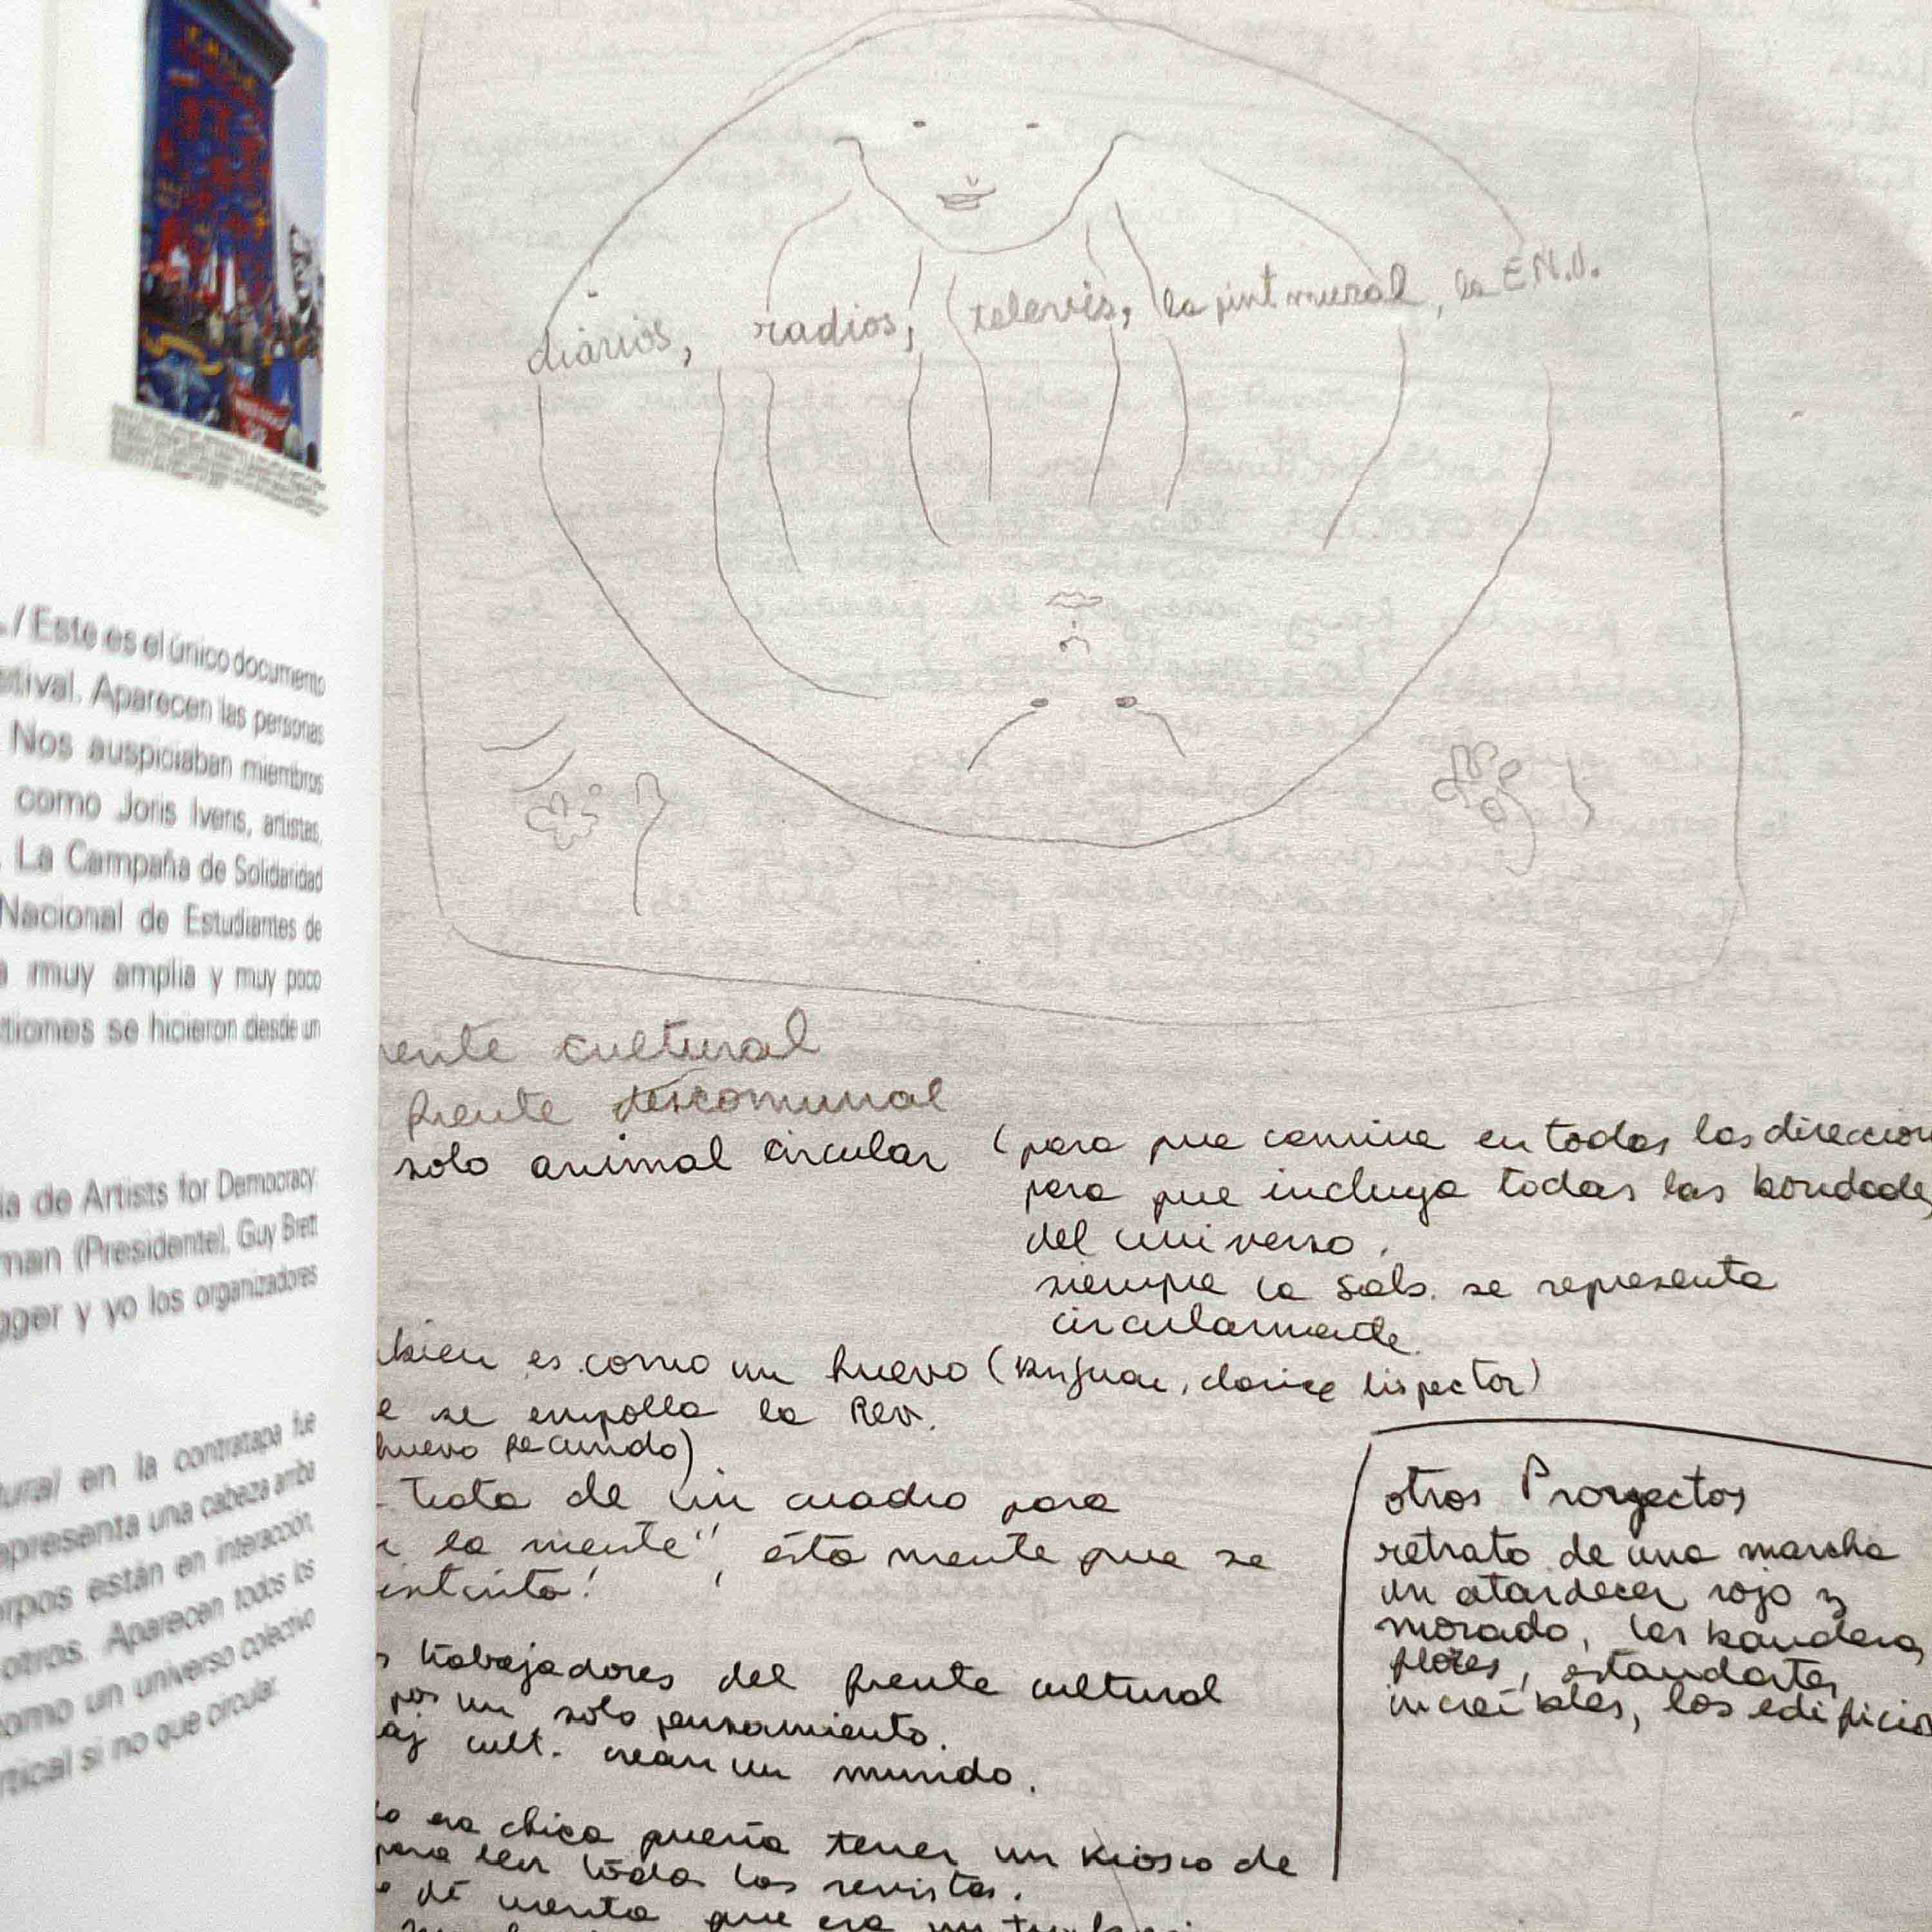 ./ Este es el único documento
stival. Aparecen las personas
Nos auspiciaban miembros
como Joris Ivens, artistas,
. La Campaña de Solidaridad
Nacional de Estudiantes de
a muy amplia y muy poco
tiones se hicieron desde un
ia de Artists for Democracy
man (Presidente), Guy Brett
gger y yo los organizadores
tural en la contratapa fue
epresenta una cabeza arriba
rpos están en interacción,
otros. Aparecen todos los
omo un universo colectivo
rtical si no que circular.
diarios, radios, televis, la pint mural, la E.M.U.
ente cultural
frente descomunal
solo animal circular (para que camine en todas las direccion
para que incluya todas las bondades
del universo.
siempre la Sab. se representa
circularmente
bien es como un huevo (, clarice lispector)
e se empolla la Rev.
huevo fecundo)
trata de un cuadro para
r la mente", ésta mente que se
s trabajadores del frente cultural
por un solo pensamiento.
aj cult. crean un mundo.
o era chica quería tener un kiosco de
para leer todas las revistas.
dí cuenta que era un
otros Proyectos
retrato de una marcha
un atardecer rojo y
morado, las banderas,
flores, estandartes
increíbles, los edificios